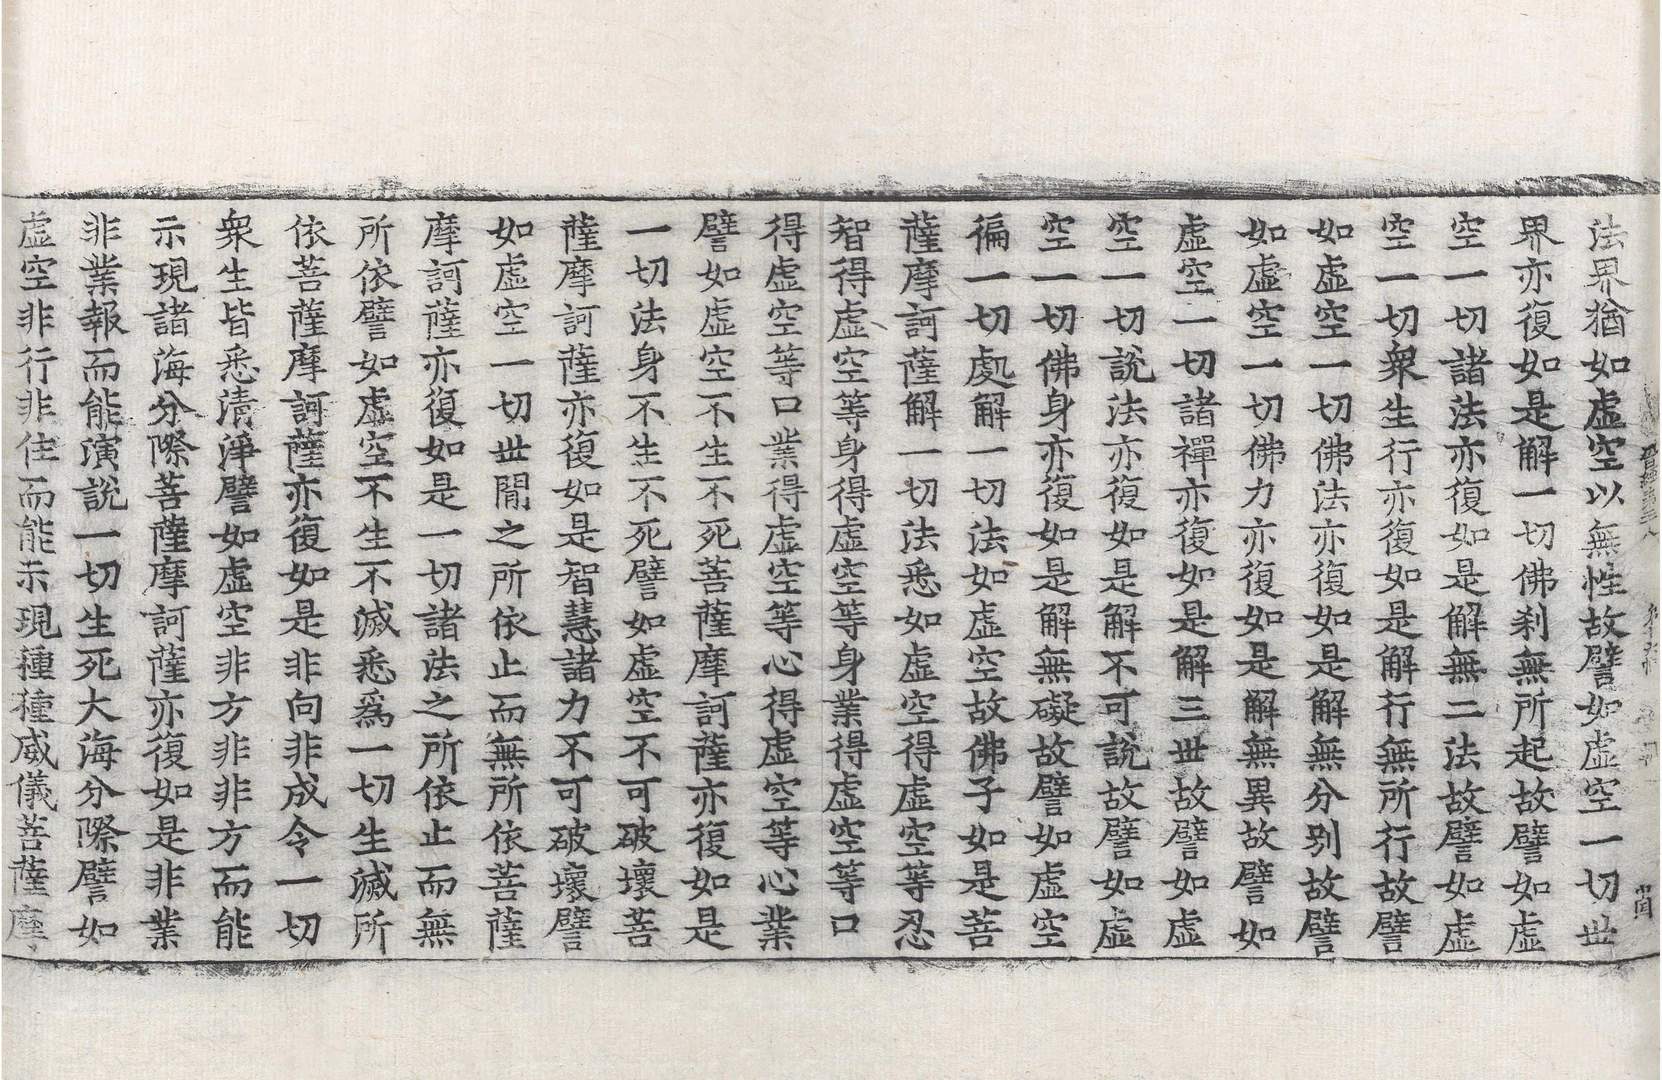 法界猶如虛空以無性故譬如虛空一切世
界亦復如是解一切佛刹無所起故譬如虛
空一切諸法亦復如是解無二法故譬如虛
空一切衆生行亦復如是解行無所行故譬
如虛空一切佛法亦復如是解無分別故譬
如虛空一切佛力亦復如是解無異故譬如
虛空一切諸禪亦復如是解三世故譬如虛
空一切說法亦復如是解不可說故譬如虛
空一切佛身亦復如是解無礙故譬如虛空
徧一切處解一切法如虛空故佛子如是菩
薩摩訶薩解一切法悉如虛空得虛空等忍
智得虛空等身得虛空等身業得虛空等口
得虛空等口業得虛空等心得虛空等心業
譬如虛空不生不死菩薩摩訶薩亦復如是
一切法身不生不死譬如虛空不可破壞菩
薩摩訶薩亦復如是智慧諸力不可破壞譬
如虛空一切世間之所依止而無所依菩薩
摩訶薩亦復如是一切諸法之所依止而無
所依譬如虛空不生不滅悉爲一切生滅所
依菩薩摩訶薩亦復如是非向非成令一切
衆生皆悉清淨譬如虛空非方非非方而能
示現諸海分際菩薩摩訶薩亦復如是非業
非業報而能演說一切生死大海分際譬如
虛空非行非住而能示現種種威儀菩薩摩